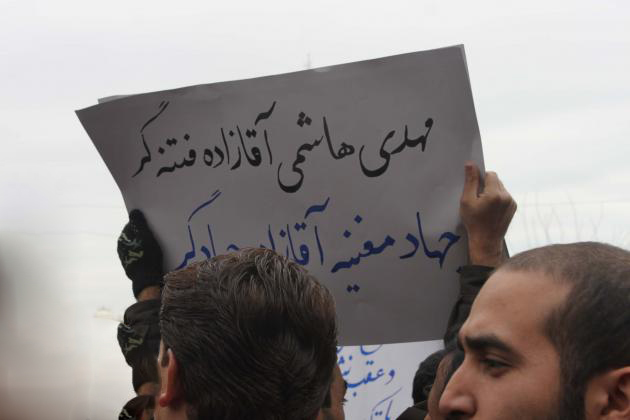 مهدی هاشمی آقازاده فتنه گر
جهاد مغنیه آقازاده جهادگر
و عقب